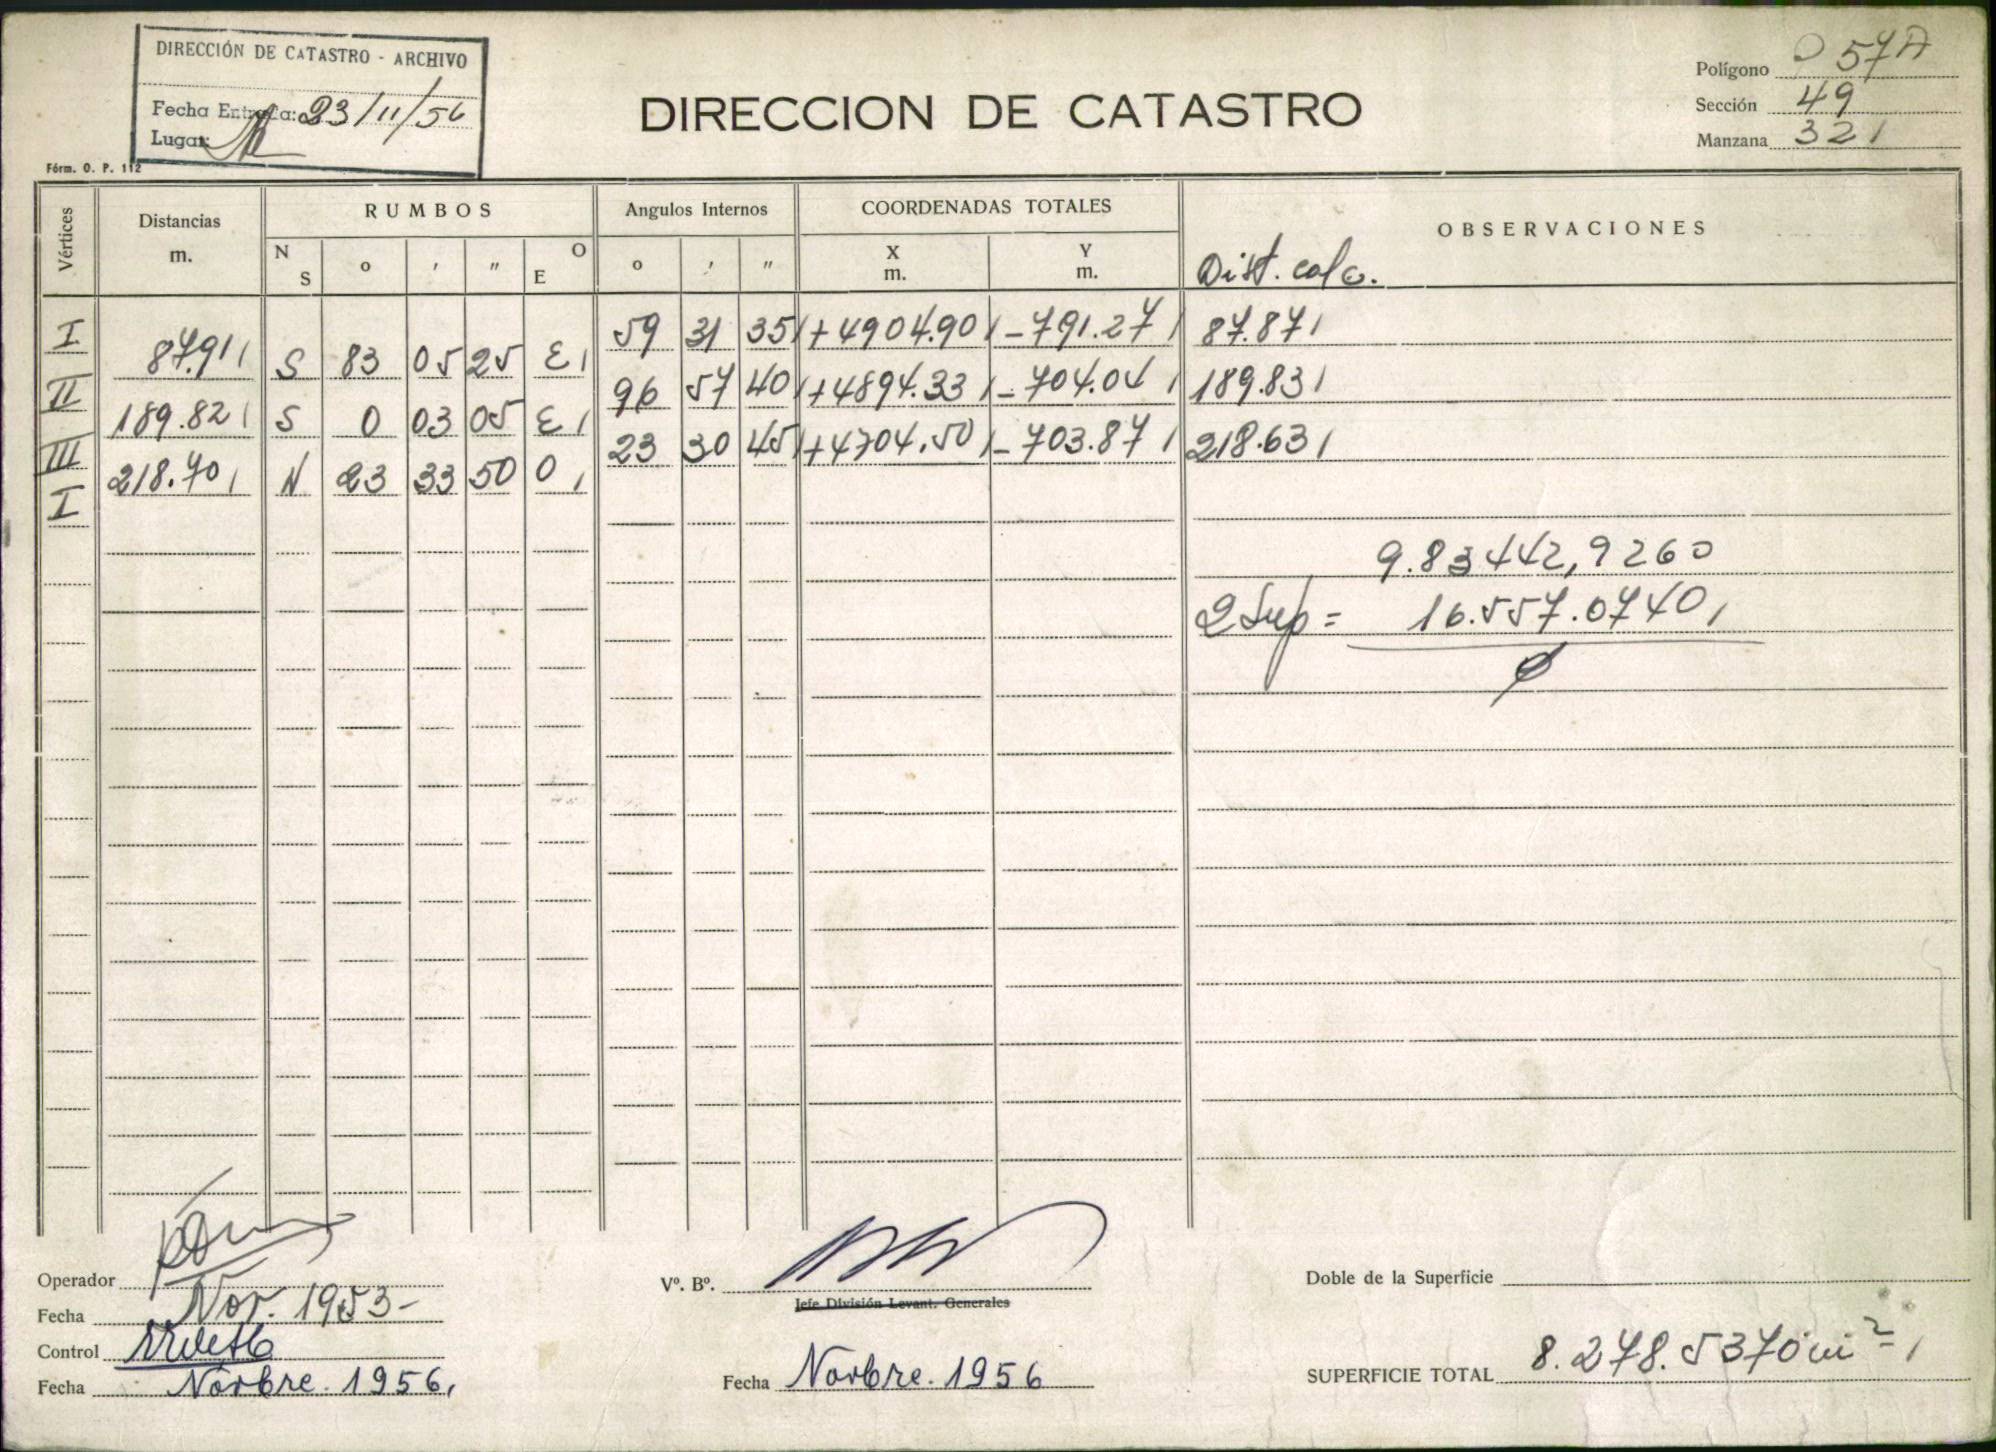 DIRECCIÓN DE CATASTRO - ARCHIVO
Fecha Entrada: 23/11/56
Lugar:
Fórm. O. P. 112
DIRECCION DE CATASTRO
Polígono 57A
Sección 49
Manzana 321
Vértices
Distancias m.
RUMBOS
N S o ' " E O
Angulos Internos
o ' "
COORDENADAS TOTALES
X m.
Y m.
OBSERVACIONES
Dist. calc.
I 59 31 35 +4904.90 -791.27 87.87
87.91 S 83 05 25 E
II 96 57 40 +4894.33 -704.04 189.83
189.82 S 0 03 05 E
III 23 30 45 +4704.50 -703.87 218.63
218.70 N 23 33 50 O
I
9.83442,9260
2 Sup = 16.557.0740
Operador
Fecha Nov. 1953-
Control
Fecha Novbre. 1956,
Vº. Bº.
Jefe División Levant. Generales
Fecha Novbre. 1956
Doble de la Superficie
SUPERFICIE TOTAL 8.278.5370 m²